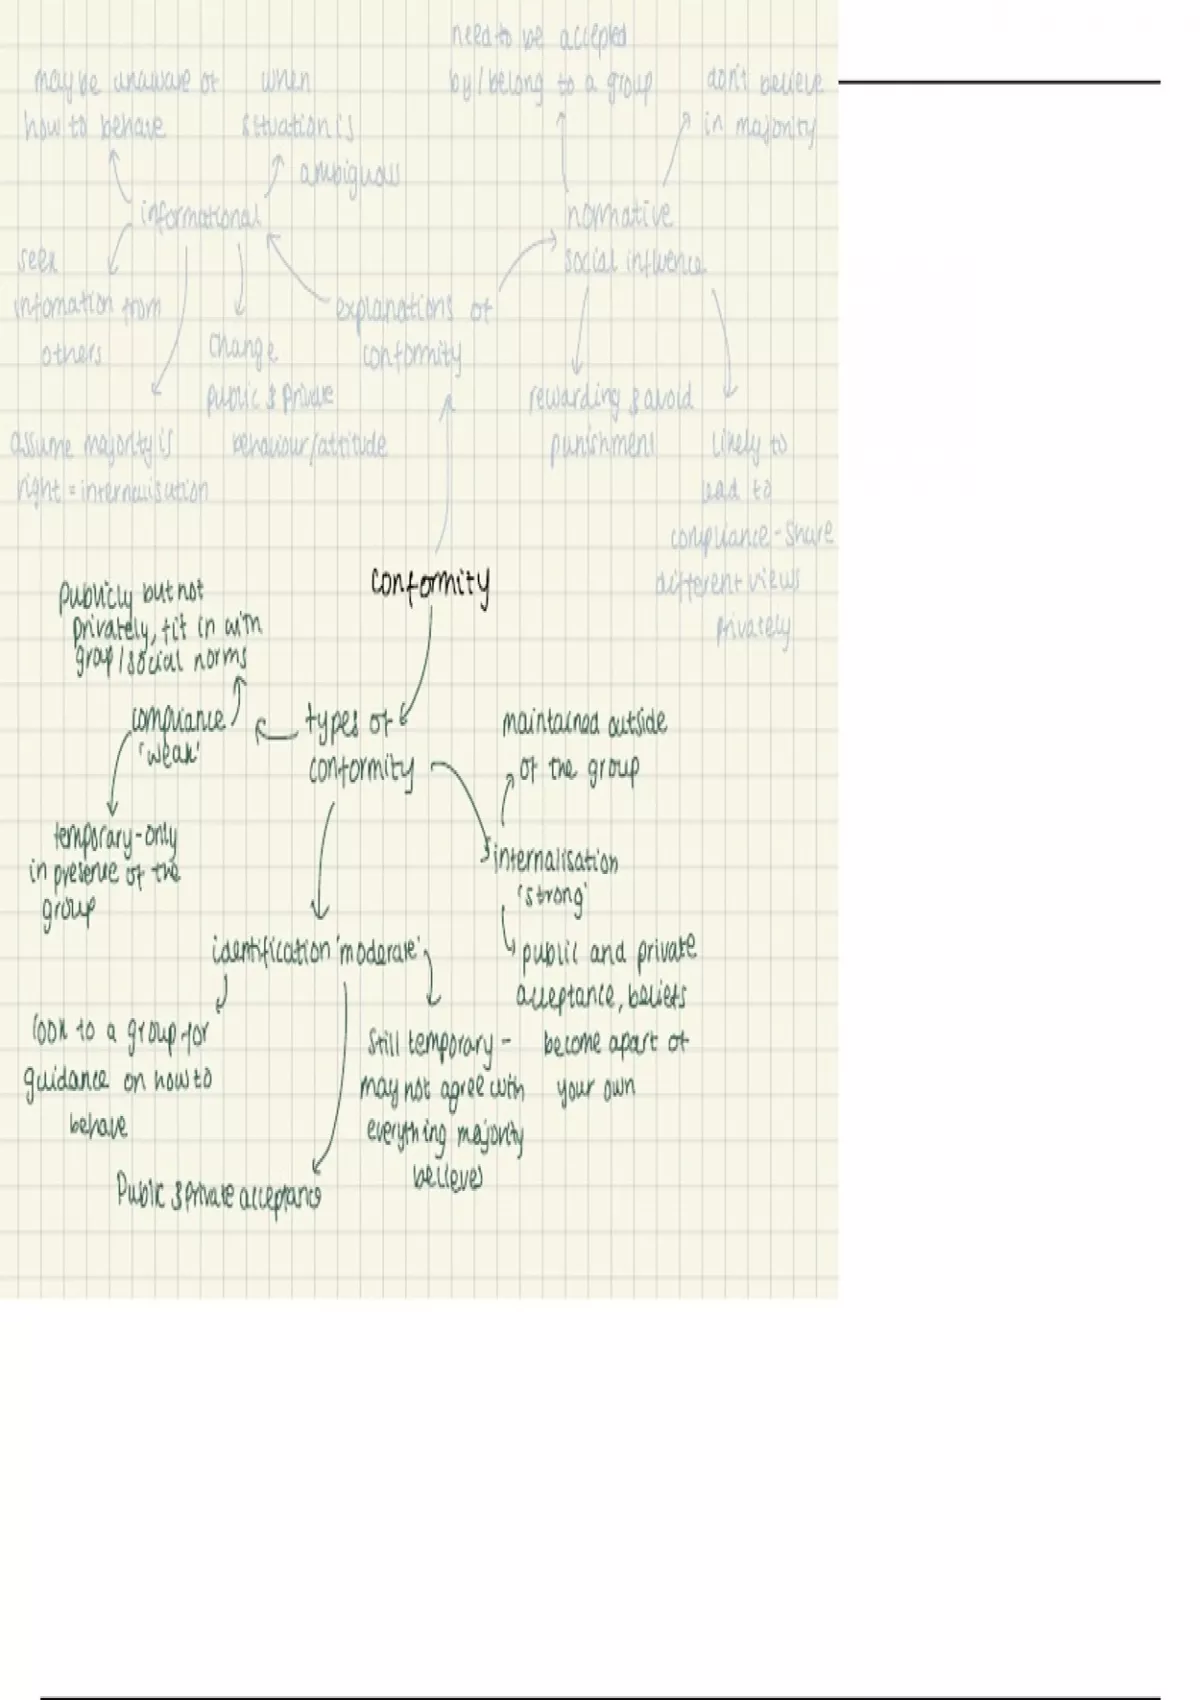 need to be accepted
by/belong to a group
don't believe
in majority
may be unaware of
how to behave
when
situation is
ambiguous
informational
normative
social influence
seek
infomation from
others
explanations of
conformity
change
public & private
behaviour/attitude
rewarding & avoid
punishment
assume majority is
right = internalisation
likely to
lead to
compliance - share
different views
privately
conformity
publicly but not
privately, fit in with
group/social norms
compliance
'weak'
types of
conformity
maintained outside
of the group
temporary - only
in presence of the
group
internalisation
'strong'
identification 'moderate'
public and private
acceptance, beliefs
become apart of
your own
look to a group for
guidance on how to
behave
Still temporary -
may not agree with
everything majority
believes
Public & private acceptance